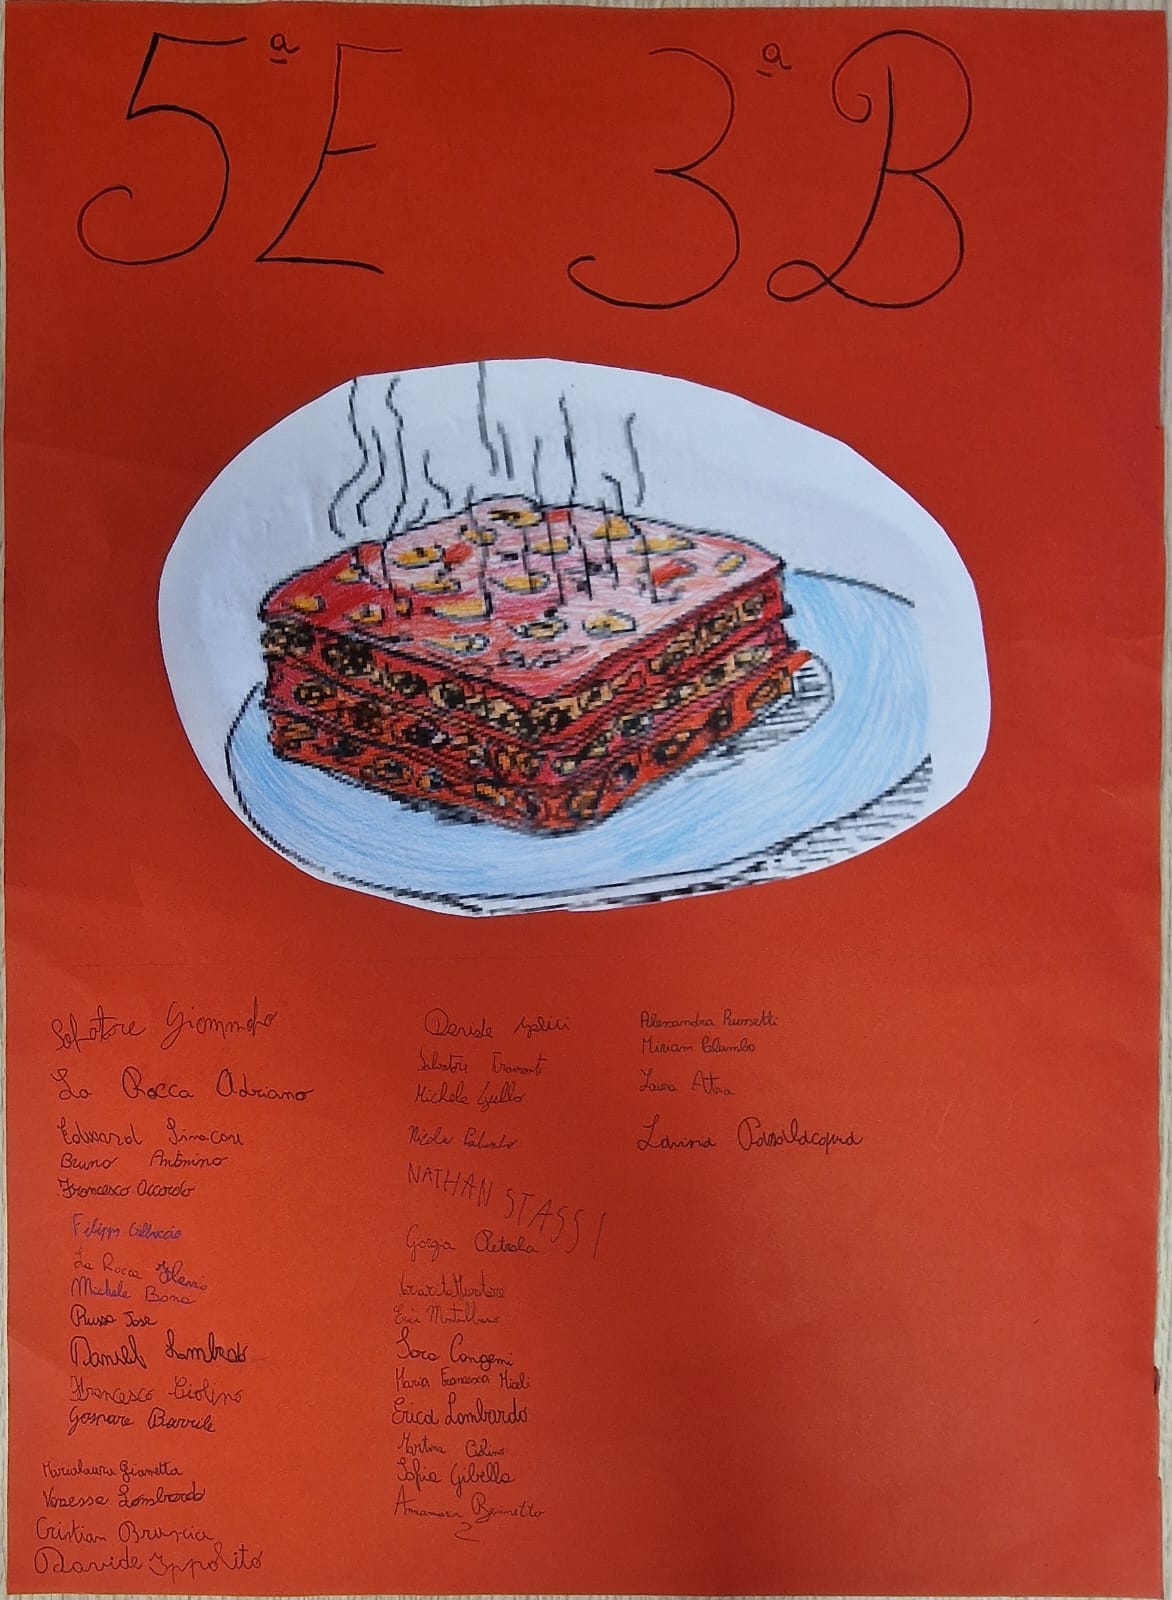 5ª E 3ª B
Salvatore Giommdo
La Rocca Adriano
Edward Simacou
Bruno Antonino
Francesco Accardo
Filippo Galluccio
La Rocca Flavio
Michele Bono
Russo Jose
Daniel Lombardo
Francesco Ciolino
Gaspare Barrile
Marialaura Giannetta
Vanessa Lombardo
Cristian Bruscia
Davide Ippolito
Davide
Salvatore Tramonti
Michele Gullo
Nicola Palumbo
NATHAN STASSI
Giorgia Pietrala
Erica Montalbano
Sara Cangemi
Maria Francesca Miceli
Erica Lombardo
Martina Ciolino
Sofia Gibella
Annamaria
Alessandra Russetti
Miriam Palumbo
Laura Attra
Lavinia Passalacqua